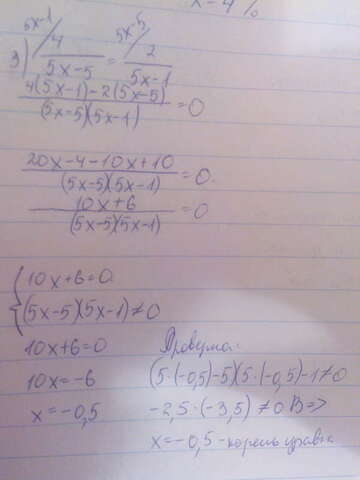 x-4%
5x-1 5x-5
3) 4/(5x-5) = 2/(5x-1)
(4(5x-1)-2(5x-5))/((5x-5)(5x-1)) = 0
(20x-4-10x+10)/((5x-5)(5x-1)) = 0.
(10x+6)/((5x-5)(5x-1)) = 0
{10x+6=0
(5x-5)(5x-1)≠0
10x+6=0
10x=-6
x=-0,5
(5·(-0,5)-5)(5·(-0,5)-1≠0
-2,5·(-3,5)≠0 В=>
x=-0,5-корень уравн